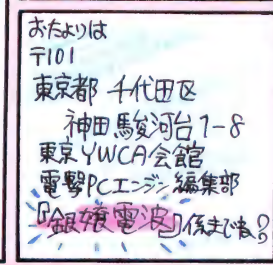 おたよりは
〒101
東京都 千代田区
神田駿河台1-8
東京YWCA会館
電撃PCエンジン編集部
『銀嬢電波』係までね♡